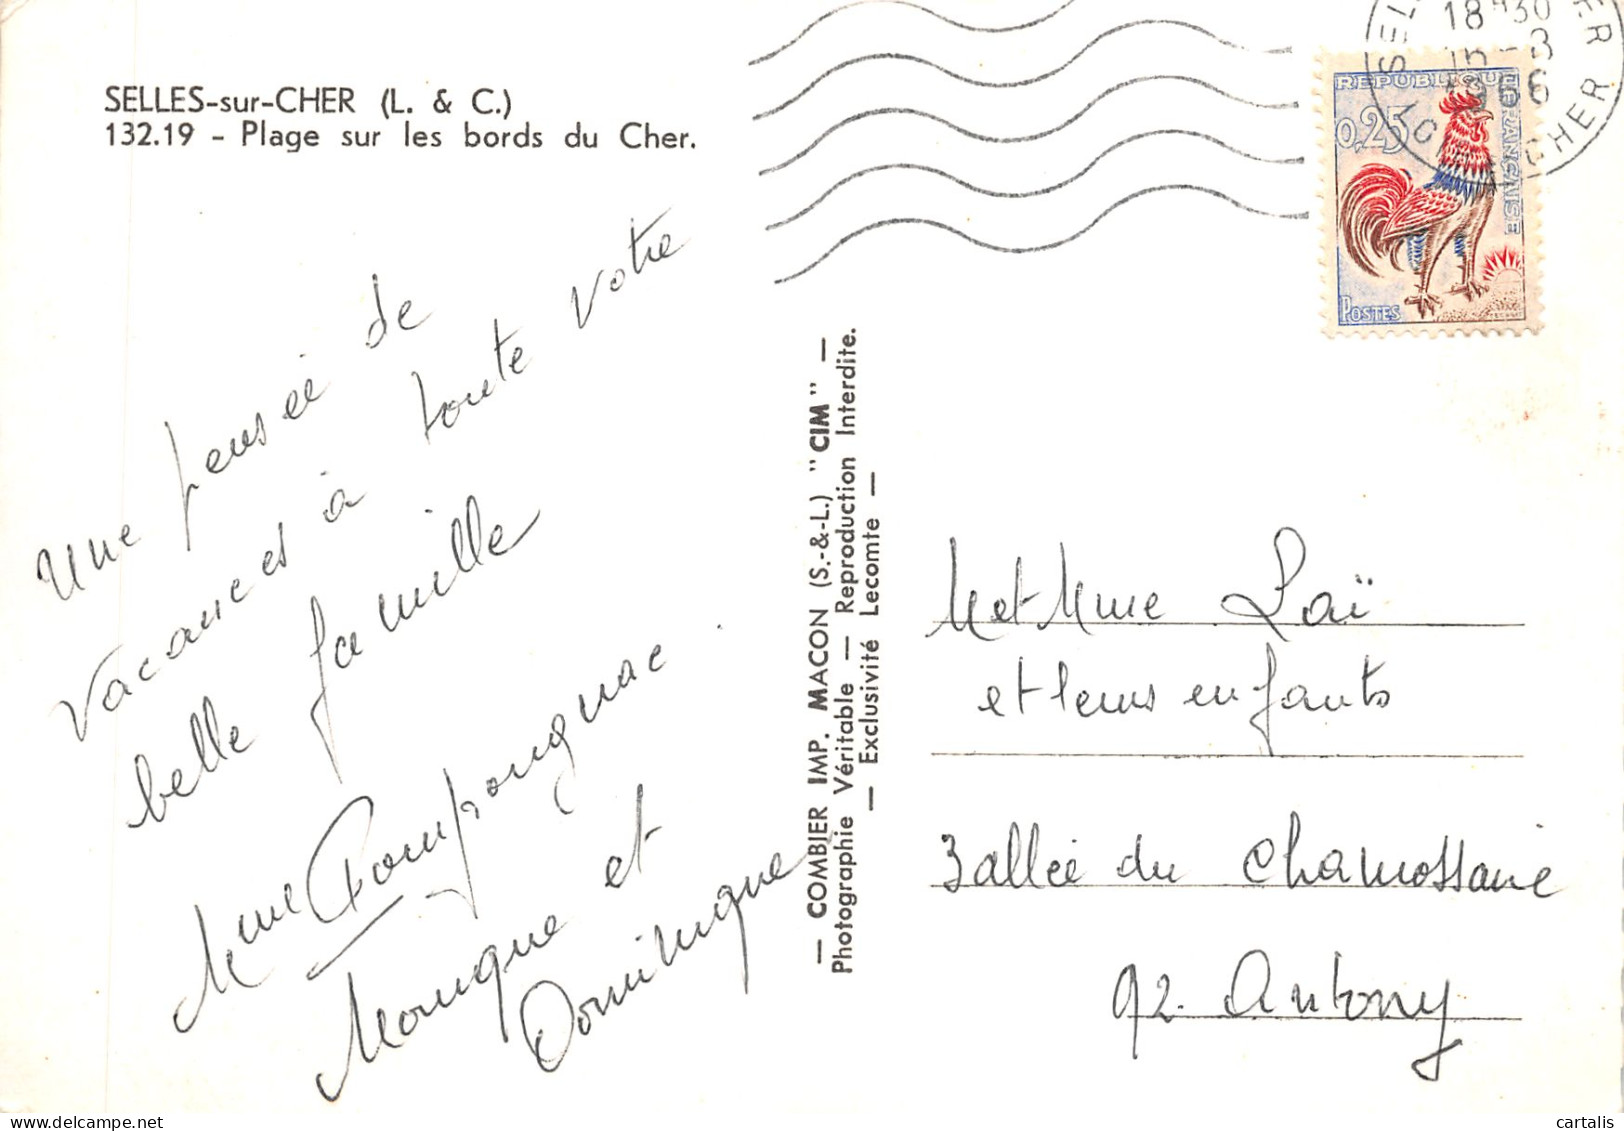 SELLES-sur-CHER (L. & C.)
132.19 - Plage sur les bords du Cher.
Une pensée de
vacances à toute votre
belle famille
Mme Pompougnac.
Monique et
Dominique
— COMBIER IMP. MACON (S.-&-L.) "CIM" —
Photographie Véritable — Reproduction Interdite.
— Exclusivité Lecomte —
18 H 30
CHER
REPUBLIQUE FRANÇAISE
0,25
POSTES
M et Mme Laï
et leurs enfants
3 allée du Chamossaire
92. Antony
cartalis
delcampe.net